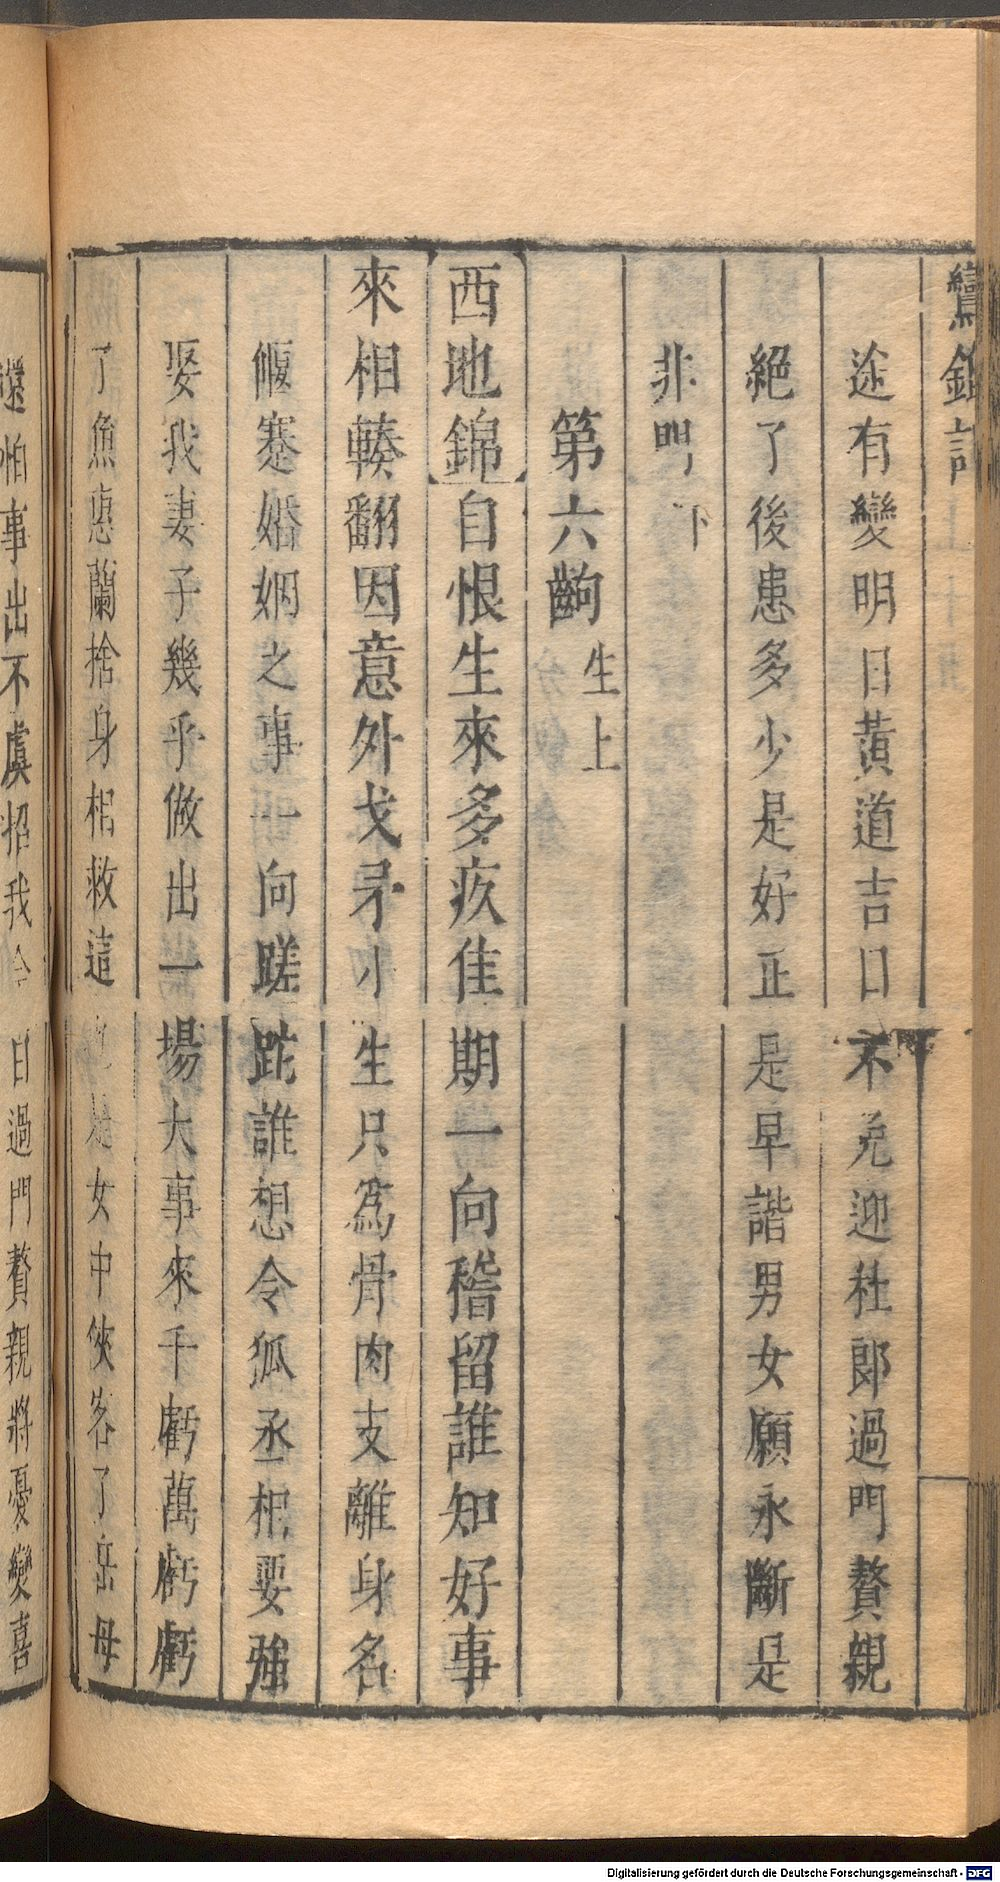 鸞鎞記
途有變明日黃道吉日不免迎杜郎過門贅親
絕了後患多少是好正是早諧男女願永斷是
非門 下
第六齣 生上
西地錦 自恨生來多疚佳期一向稽留誰知好事
來相輳翻因意外戈矛小生只爲骨肉支離身名
偃蹇婚姻之事一向蹉跎誰想令狐丞相要強
娶我妻子幾乎做出一場大事來千虧萬虧虧
了魚惠蘭捨身相救這 是女中俠客了岳母
還怕事出不虞招我今日過門贅親將憂變喜
Digitalisierung gefördert durch die Deutsche Forschungsgemeinschaft - DFG